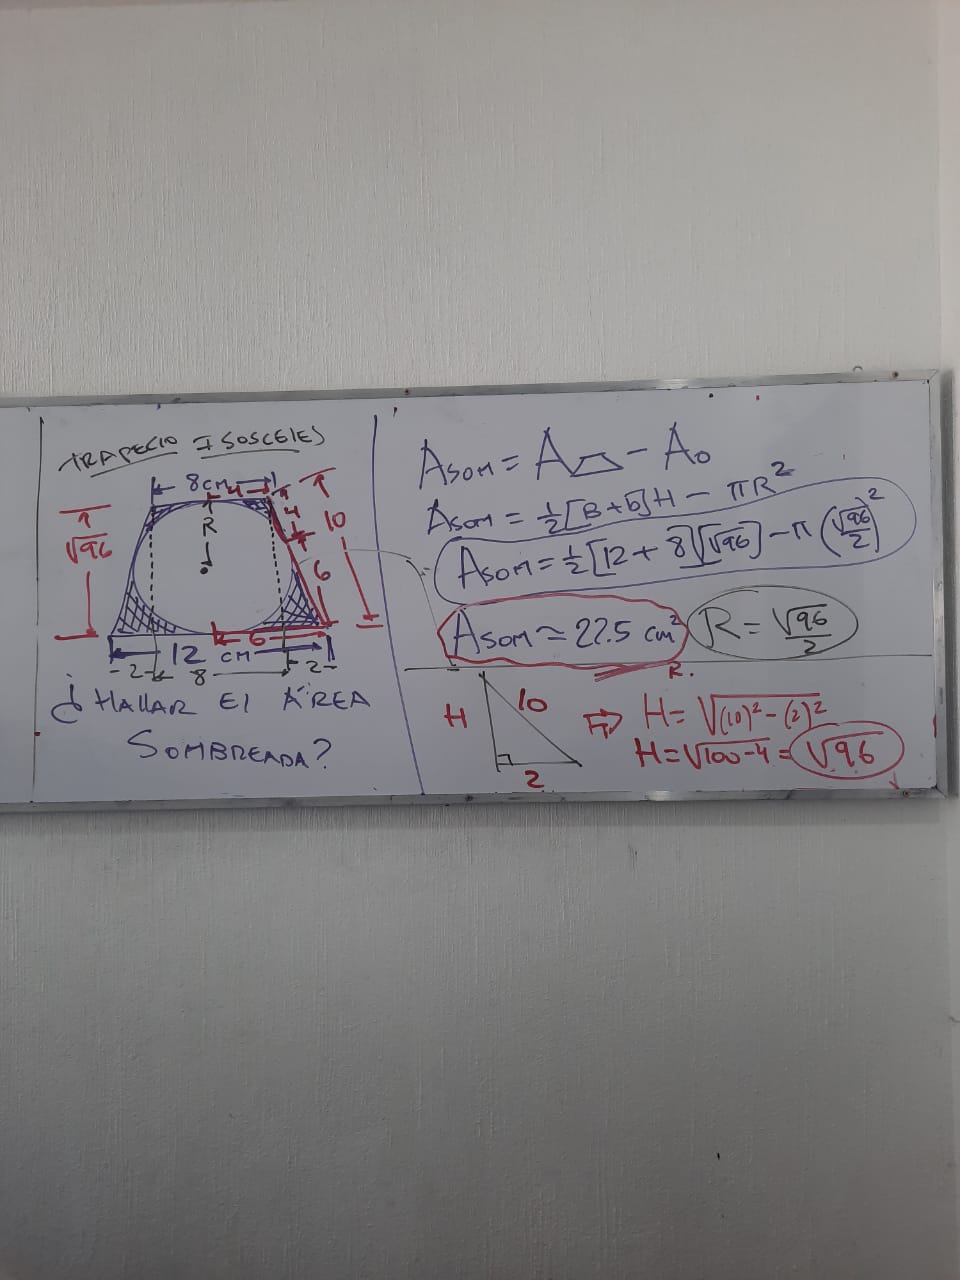 TRAPECIO ISOSCELES
8cm
4
R
4
10
√96
6
6
12 cm
2
8
2
¿HALLAR El ÁREA
SOMBREADA?
Asom = A⏢ - Ao
Asom = ½[B+b]H - πR²
Asom = ½[12+8][√96] - π(√96/2)²
Asom ≈ 22.5 cm²
R = √96/2
R.
H
10
2
⇒ H = √(10)²-(2)²
H = √100-4 = √96